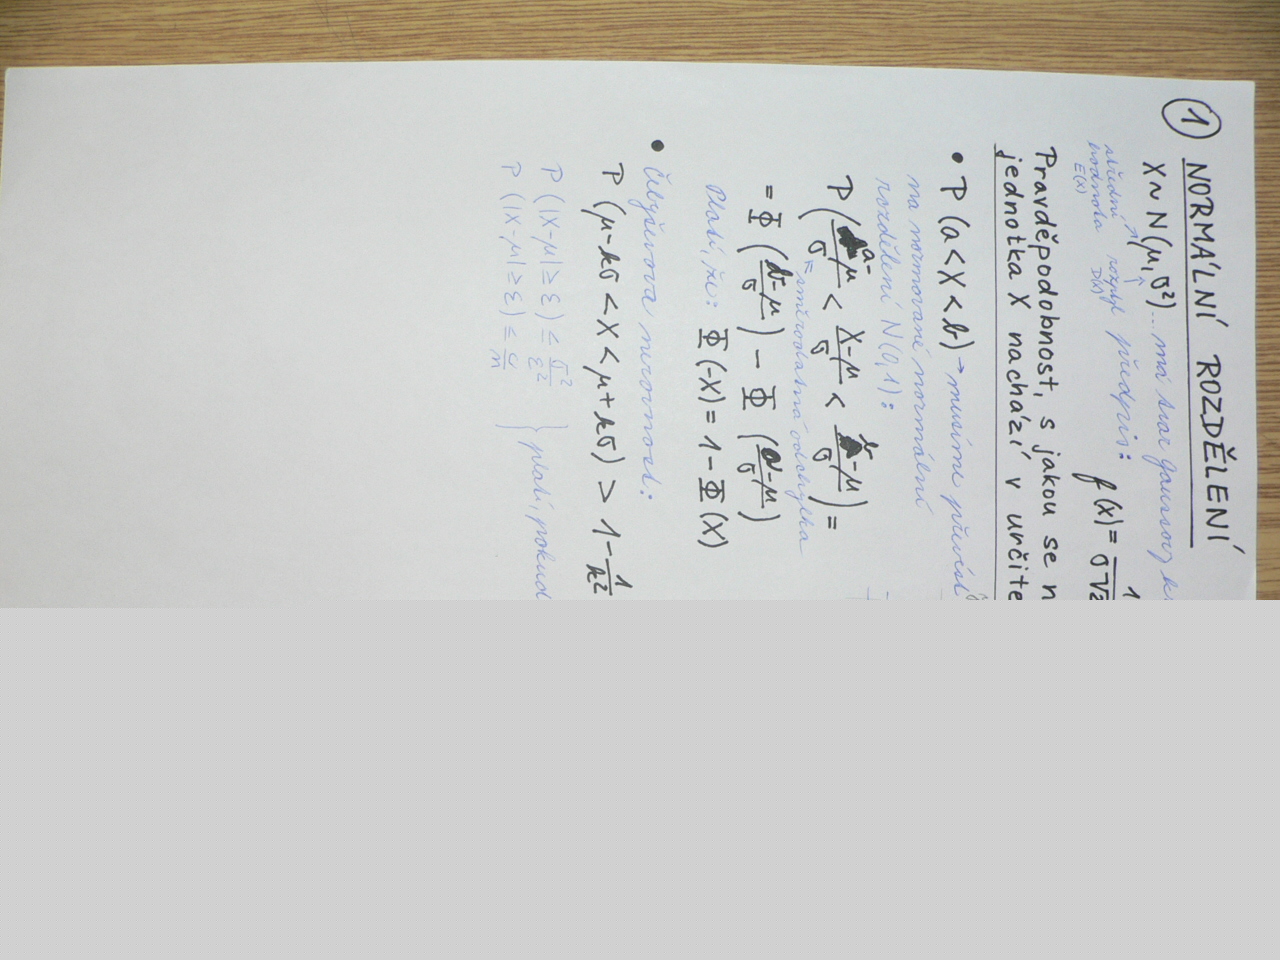 ① NORMÁLNÍ ROZDĚLENÍ
X ~ N(μ, σ²)... má tvar gaussovy
střední hodnota E(X) rozptyl D(X) předpis: f(x) = 1/σ√2
Pravděpodobnost, s jakou se n
jednotka X nachází v určité
• P (a < X < b) → musíme převést
na normované normální
rozdělení N(0,1):
P (a-μ/σ < X-μ/σ < b-μ/σ) =
= směrodatná odchylka
= Φ (b-μ/σ) - Φ (a-μ/σ)
Platí, že: Φ(-X) = 1 - Φ(X)
• Čebyševova nerovnost:
P (μ-kσ < X < μ+kσ) > 1 - 1/k²
P (|X-μ| ≥ ε) ≤ σ²/ε²
P (|X-μ| ≥ ε) ≤ } platí, pokud